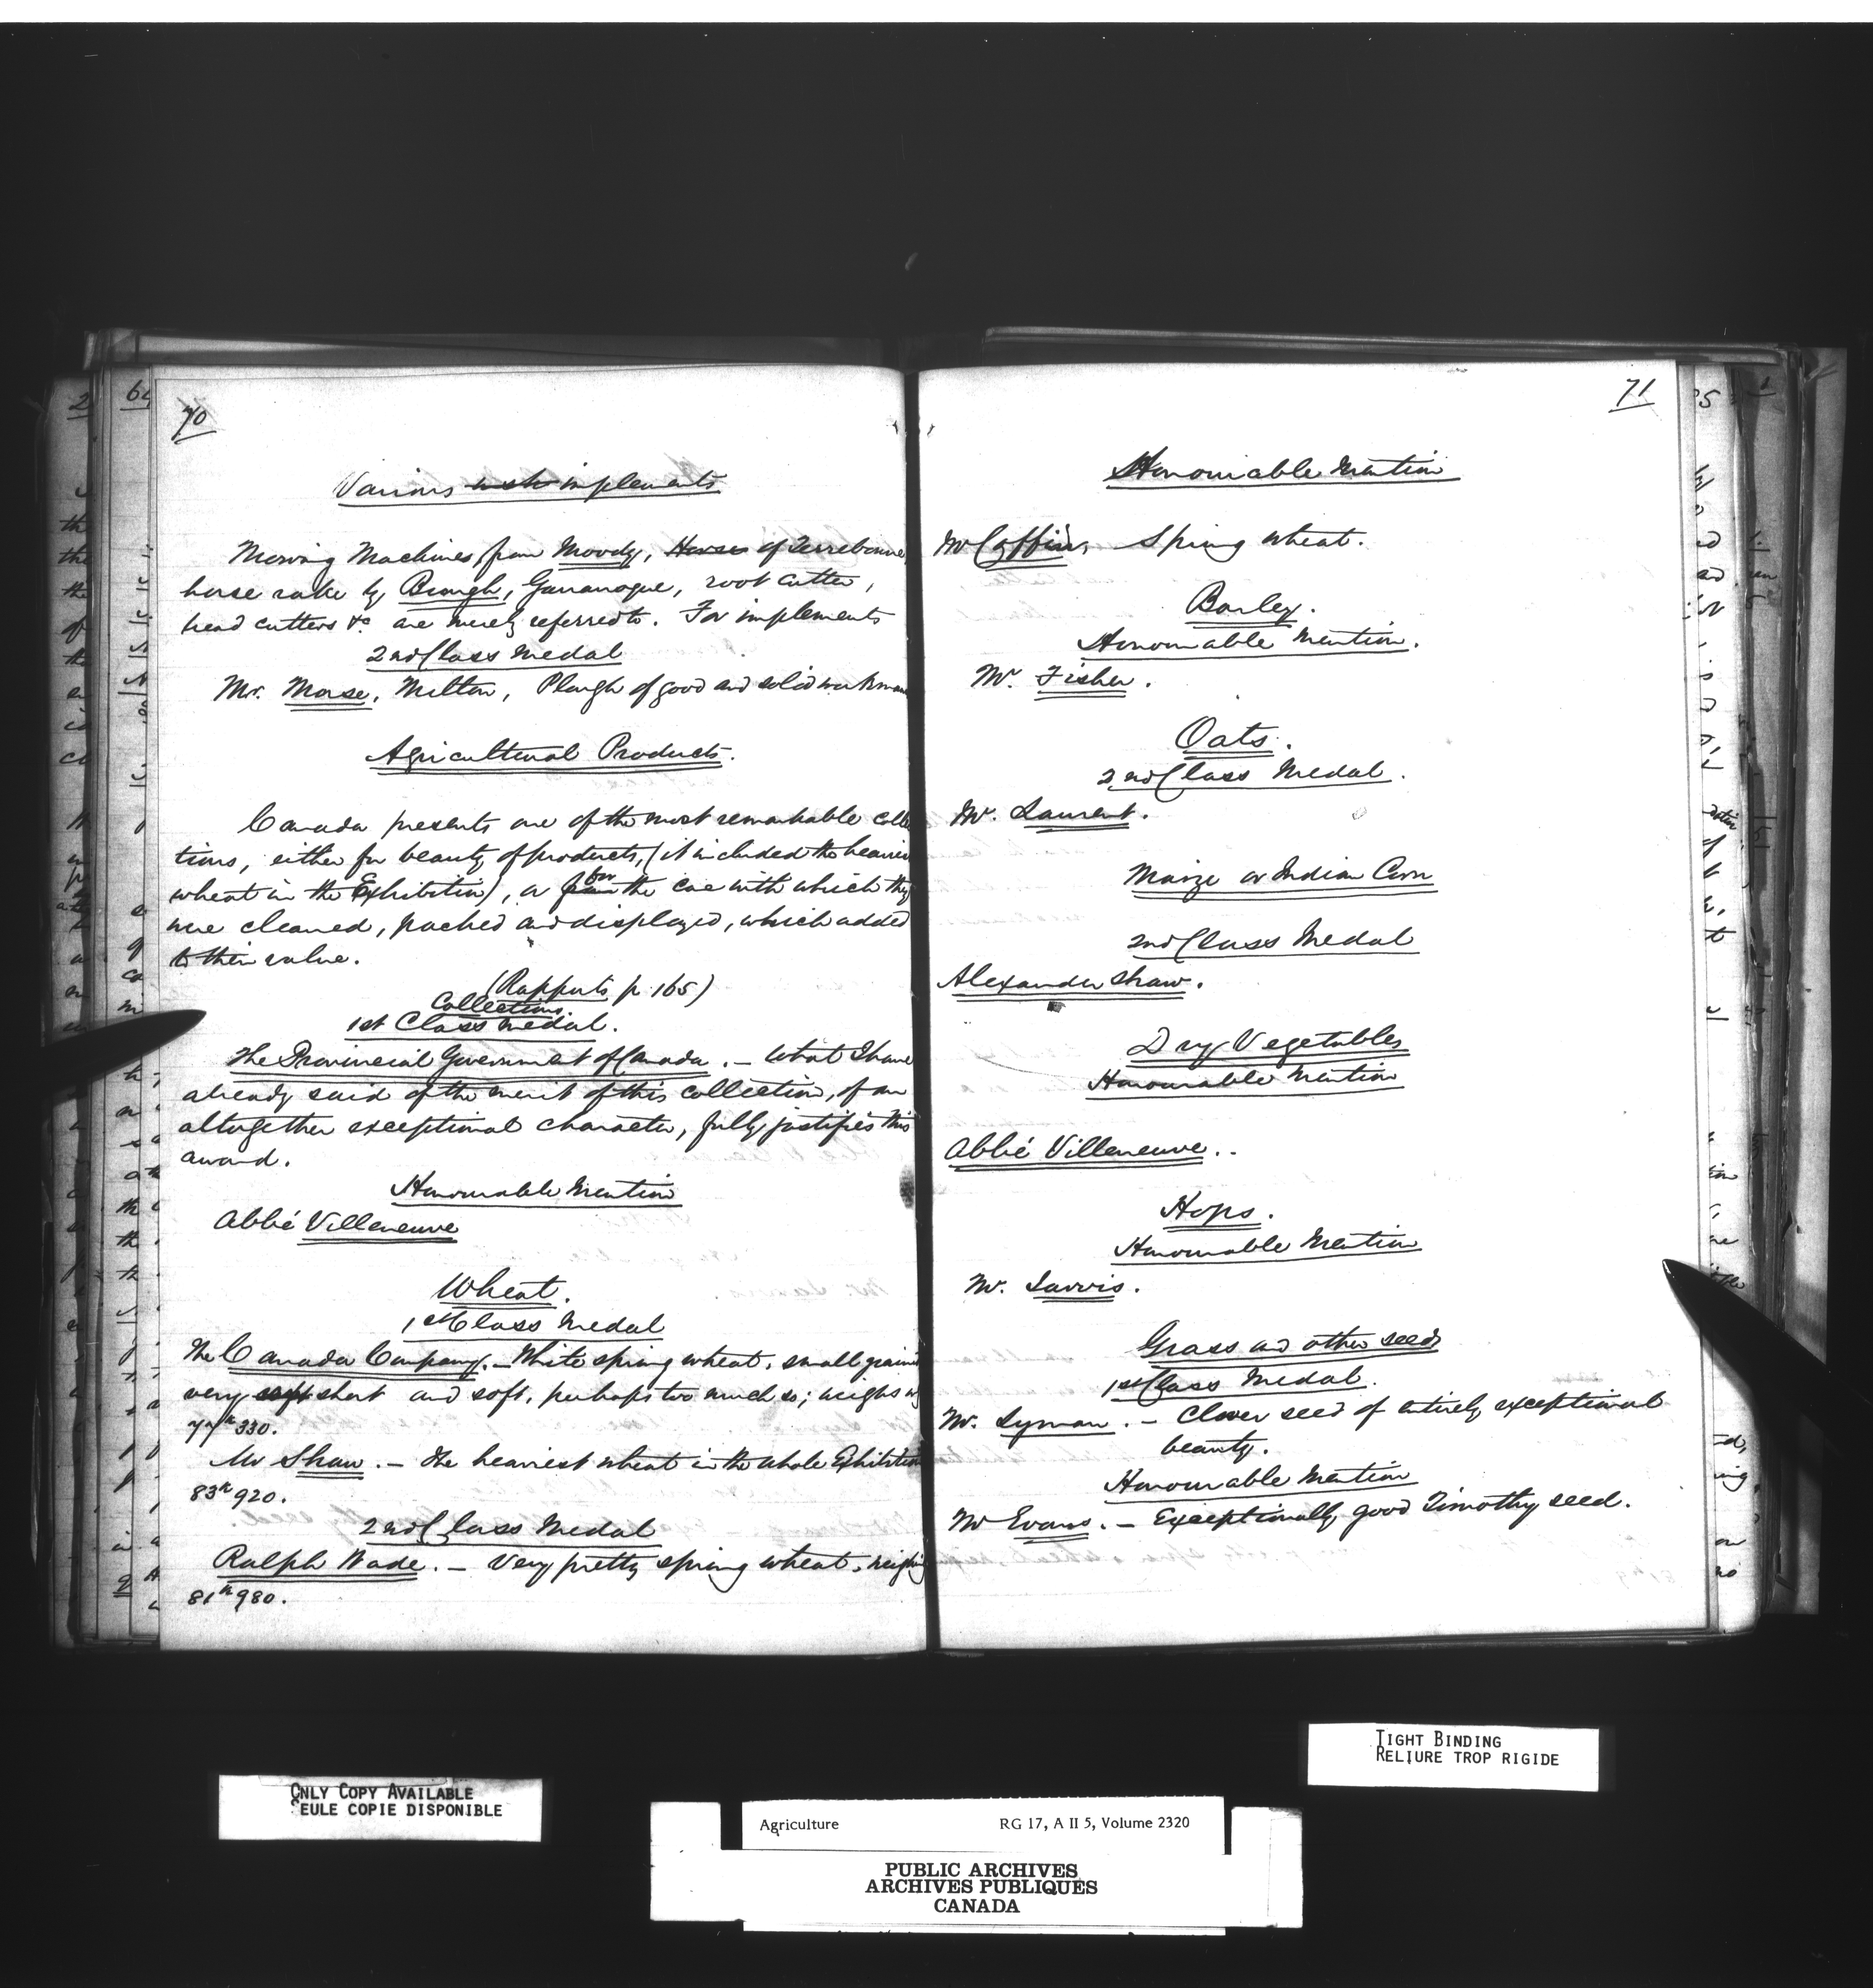 70
Various implements
Mowing Machines from Moody, Horse of Terrebonne,
horse rake by Brough, Gananoque, root cutter,
head cutters &c are merely referred to. For implements
2nd Class Medal
Mr. Morse, Milton, Plough of good and solid workman
Agricultural Products.
Canada presents one of the most remarkable collec
tions, either for beauty of products, (it included the heaviest
wheat in the Exhibition), or for the care with which they
were cleaned, packed and displayed, which added
to their value.
(Rapports p. 165)
Collections.
1st Class Medal.
The Provincial Government of Canada. – What I have
already said of the merit of this collection, of an
altogether exceptional character, fully justifies this
award.
Honourable Mention
Abbé Villeneuve
Wheat.
1st Class Medal
The Canada Company. – White spring wheat, small grained
very soft short and soft, perhaps too much so; weighs
77k 330.
Mr Shaw. – The heaviest wheat in the whole Exhibition
83k 920.
2nd Class Medal
Ralph Wade. – Very pretty spring wheat, weighing
81k 980.
71
Honourable Mention
Mr Coffin, Spring wheat.
Barley.
Honourable Mention.
Mr. Fisher.
Oats.
2nd Class Medal.
Mr. Laurent.
Maize or Indian Corn
2nd Class Medal
Alexander Shaw.
Dry Vegetables
Honourable Mention
Abbé Villeneuve..
Hops.
Honourable Mention
Mr. Jarvis.
Grass and other seeds
1st Class Medal.
Mr. Lyman. – Clover seed of entirely exceptional
beauty.
Honourable Mention
Mr Evans. – Exceptionally good Timothy seed.
TIGHT BINDING
RELIURE TROP RIGIDE
ONLY COPY AVAILABLE
SEULE COPIE DISPONIBLE
Agriculture RG 17, A II 5, Volume 2320
PUBLIC ARCHIVES
ARCHIVES PUBLIQUES
CANADA